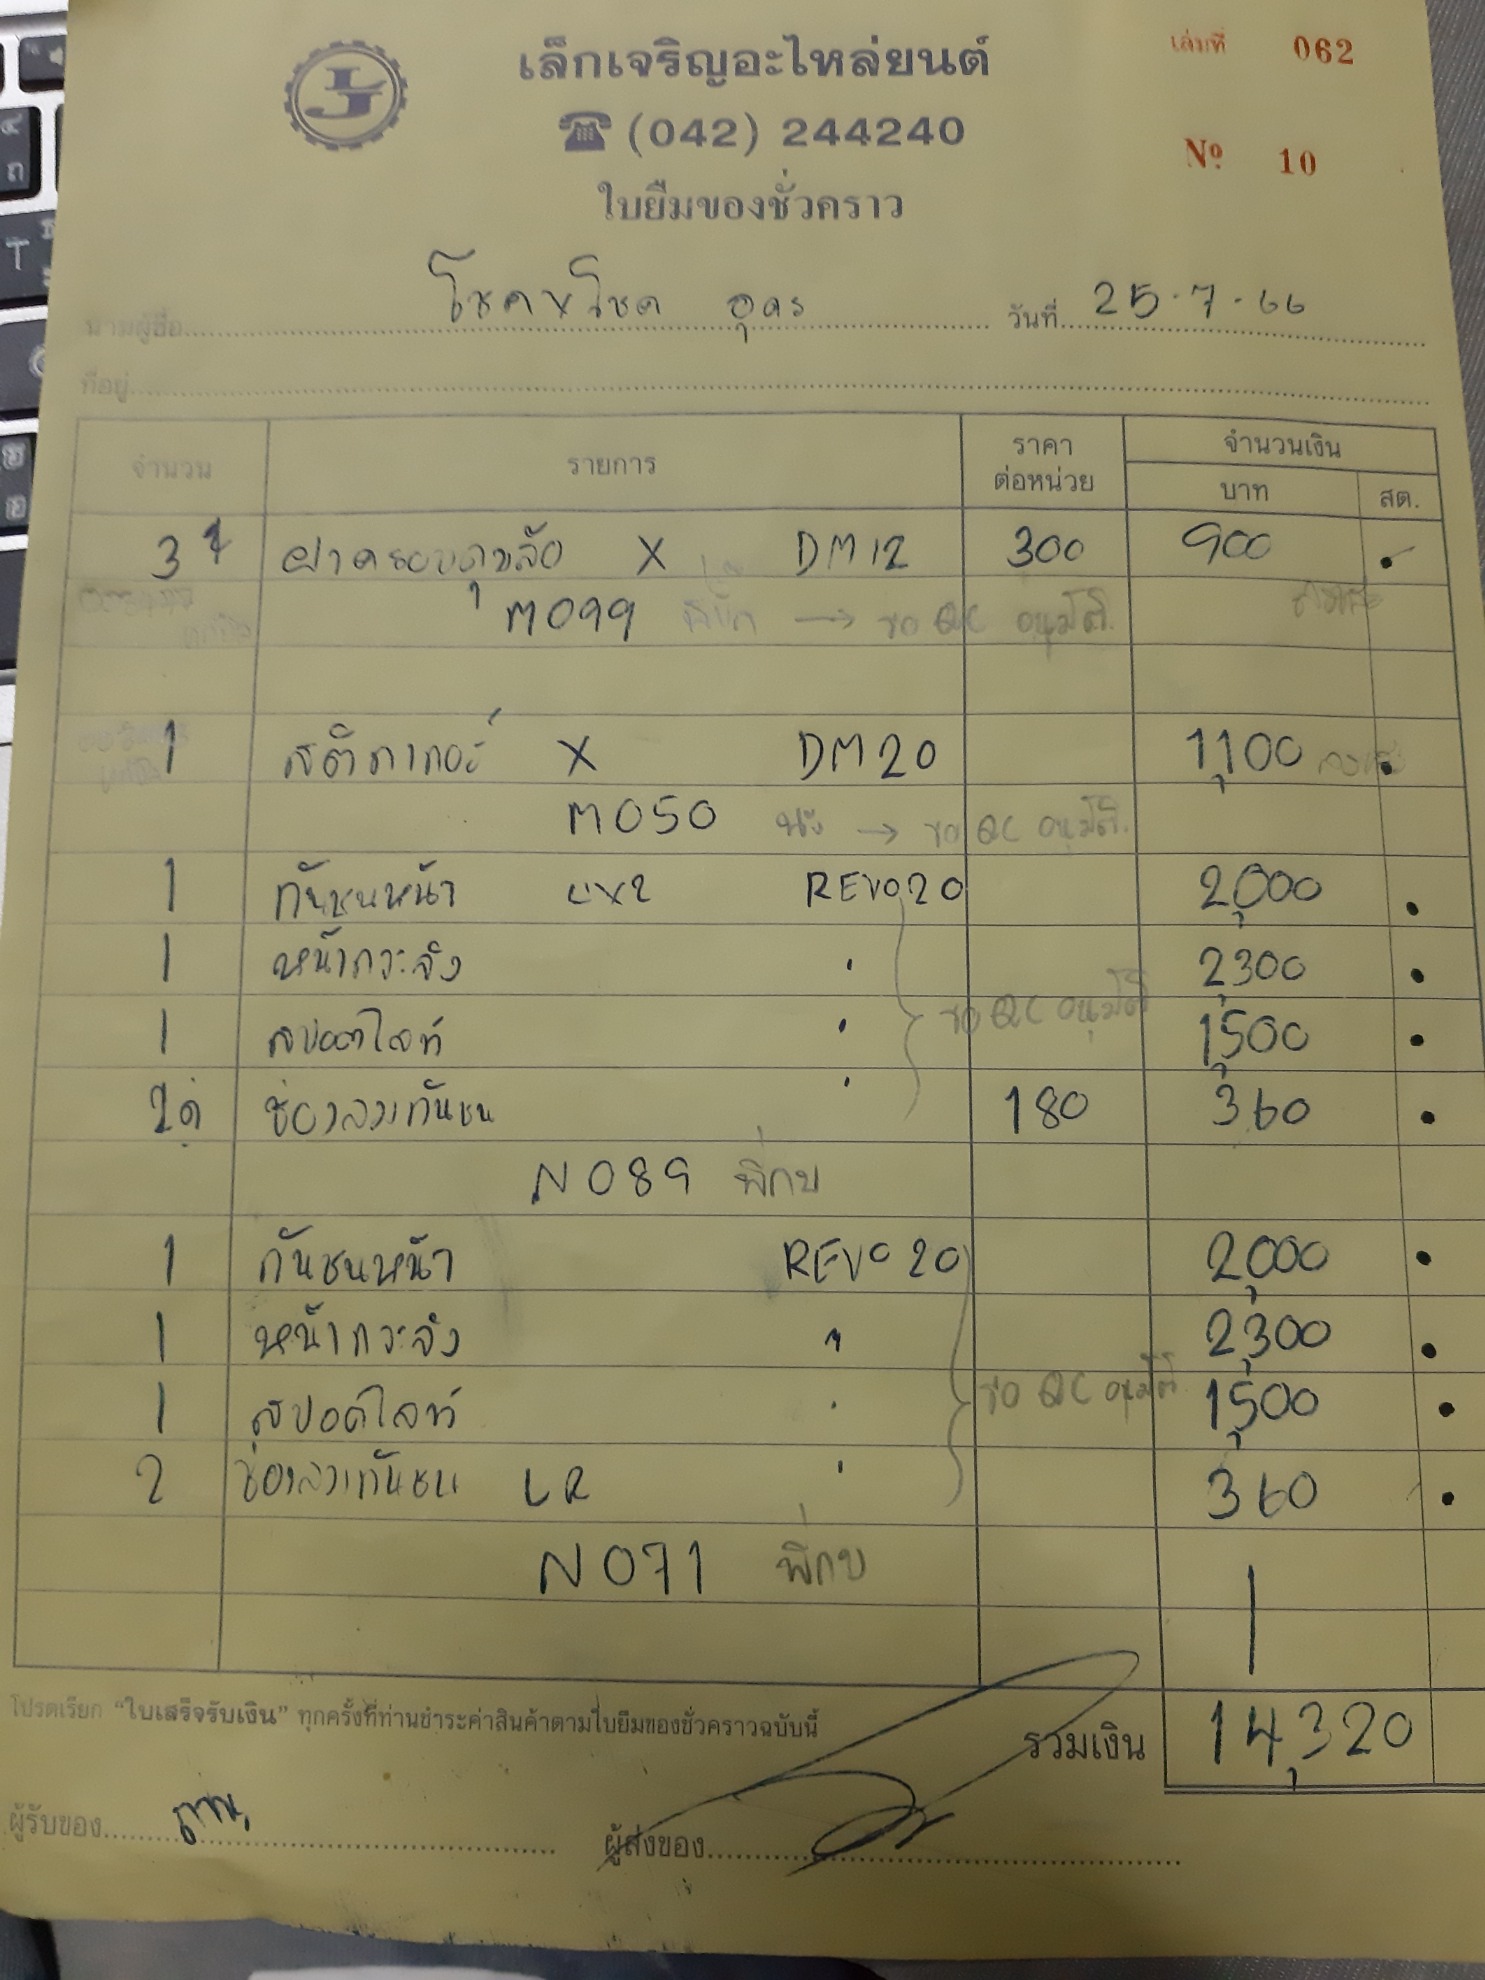 เล็กเจริญอะไหล่ยนต์
เล่มที่ 062
(042) 244240
Nº 10
ใบยืมของชั่วคราว
นามผู้ซื้อ โชคxโชค อุดร วันที่ 25-7-66
ที่อยู่
จำนวน รายการ ราคาต่อหน่วย จำนวนเงิน
บาท สต.
3 ฝาครอบดุมล้อ X DM12 300 900
M099 → ขอ QC อนุมัติ
1 สติกเกอร์ X DM20 1,100
M050 → ขอ QC อนุมัติ
1 กันชนหน้า REVO20 2,000
1 หน้ากระจัง " 2,300
ขอ QC อนุมัติ
1 สปอตไลท์ " 1,500
2 ช่องลมกันชน " 180 360
N089 พี่กบ
1 กันชนหน้า REVO20 2,000
1 หน้ากระจัง " 2,300
1 สปอตไลท์ " ขอ QC อนุมัติ 1,500
2 ช่องลมกันชน LR " 360
N071 พี่กบ
โปรดเรียก "ใบเสร็จรับเงิน" ทุกครั้งที่ท่านชำระค่าสินค้าตามใบยืมของชั่วคราวฉบับนี้
รวมเงิน 14,320
ผู้รับของ ผู้ส่งของ